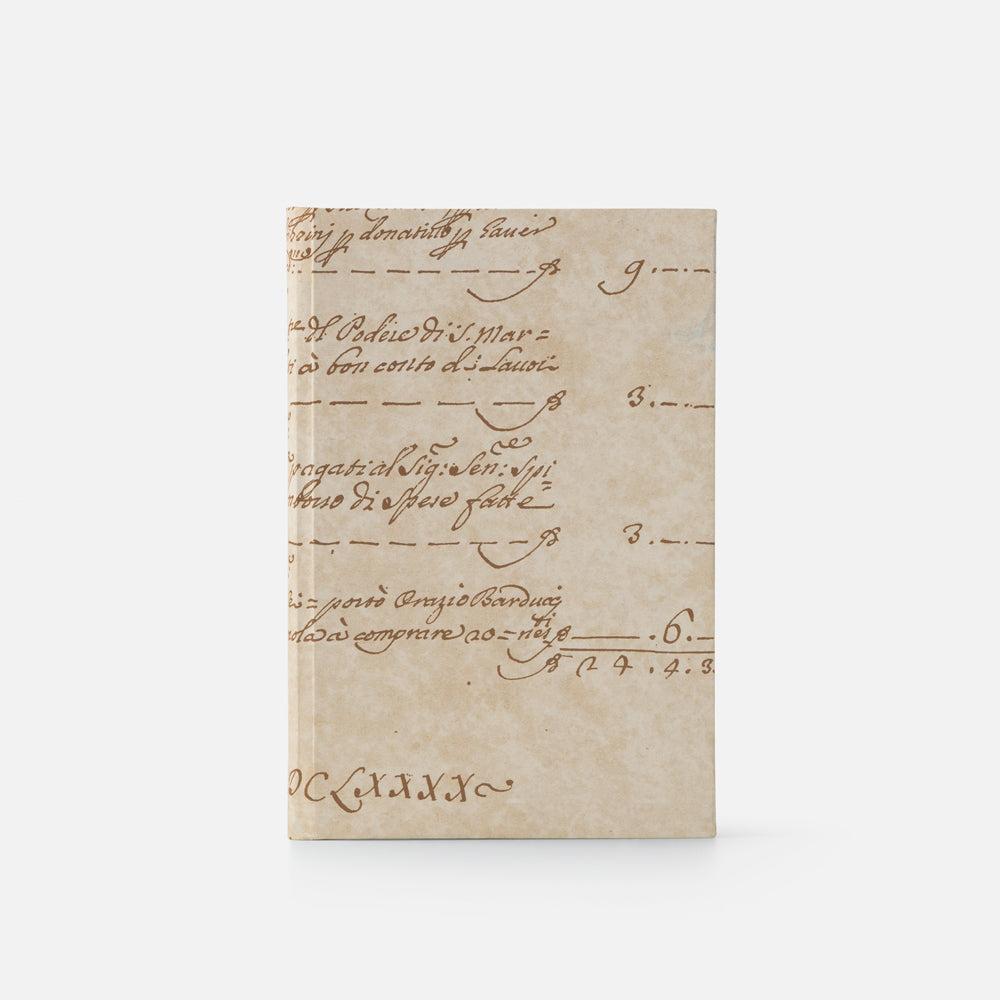 donatiuo Gauer
9.
dl Podere di S. Mar=
ti à bon conto di Lauori
3.
pagati al Sig: Sen: Spi
di spese fatte
3.
= portò Orazio Barducij
à comprare 20=
.6.
24.4.3
DCLXXXX